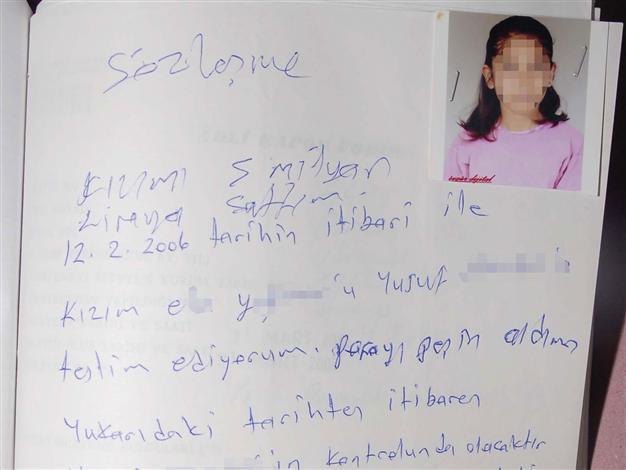 Sözleşme
Kızımı 5 milyar
Liraya sattım.
12.2.2006 tarihin itibari ile
Kızım e y 'u Yusuf
teslim ediyorum. parayı peşin aldım
Yukarıdaki tarihten itibaren
in kontrolunda olacaktır